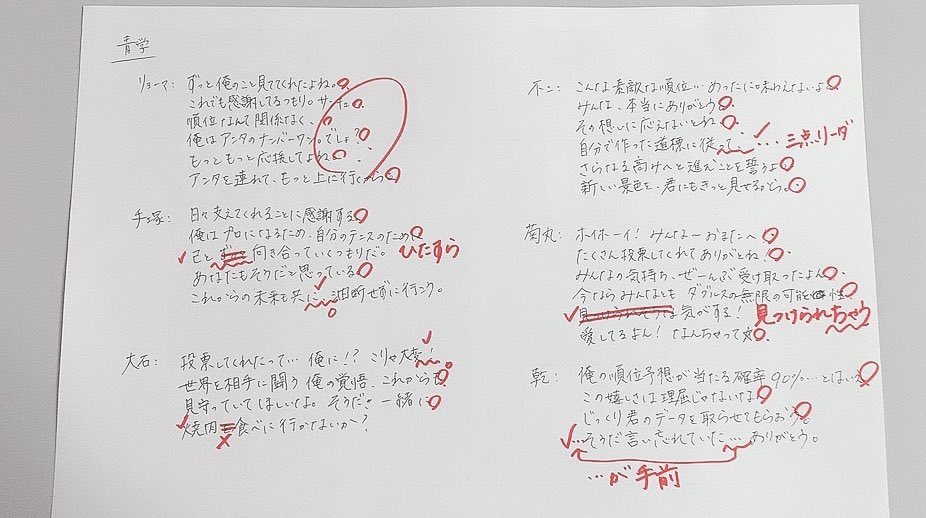 青学
リョーマ: ずっと俺のこと見ててくれたよね。
これでも感謝してるつもり。サンキュ。
順位なんて関係なく、
俺はアンタのナンバーワン。でしょ?
もっともっと応援してよね。
アンタを連れて、もっと上に行くから。
手塚: 日々支えてくれることに感謝する。
俺はプロになるため、自分のテニスのために
己と 向き合っていくつもりだ。 ひたすら
あなたもそうだと思っている。
これからの未来も共に、油断せずに行こう。
。
大石: 投票してくれたって… 俺に!? こりゃ大変!
。
世界を相手に闘う俺の覚悟、これからも
見守っていてほしいな。そうだ。一緒に
焼肉 食べに行かないか?
不二: こんな素敵な順位… めったに味わえないよ。
みんな、本当にありがとう。
その想いに応えないとね。
自分で作った道標に従って… …三点リーダ
さらなる高みへと進むことを誓うよ。
新しい景色を、君にもきっと見せるから。
菊丸: ホイホーイ! みんなーおまたへ。
たくさん投票してくれてありがとね!
みんなの気持ち、ぜーんぶ受け取ったよん。
今ならみんなとも ダブルスの無限の可能性
気がする! 見つけられちゃう
愛してるよん! なんちゃって
乾: 俺の順位予想が当たる確率90%… とはいえ
この嬉しさは理屈じゃないな。
じっくり君のデータを取らせてもらおう。
…そうだ言い忘れていた… ありがとう。
…が手前